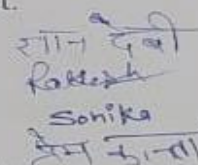 ज्ञान देवी
Rakesh
Sonika
हेम कान्ता